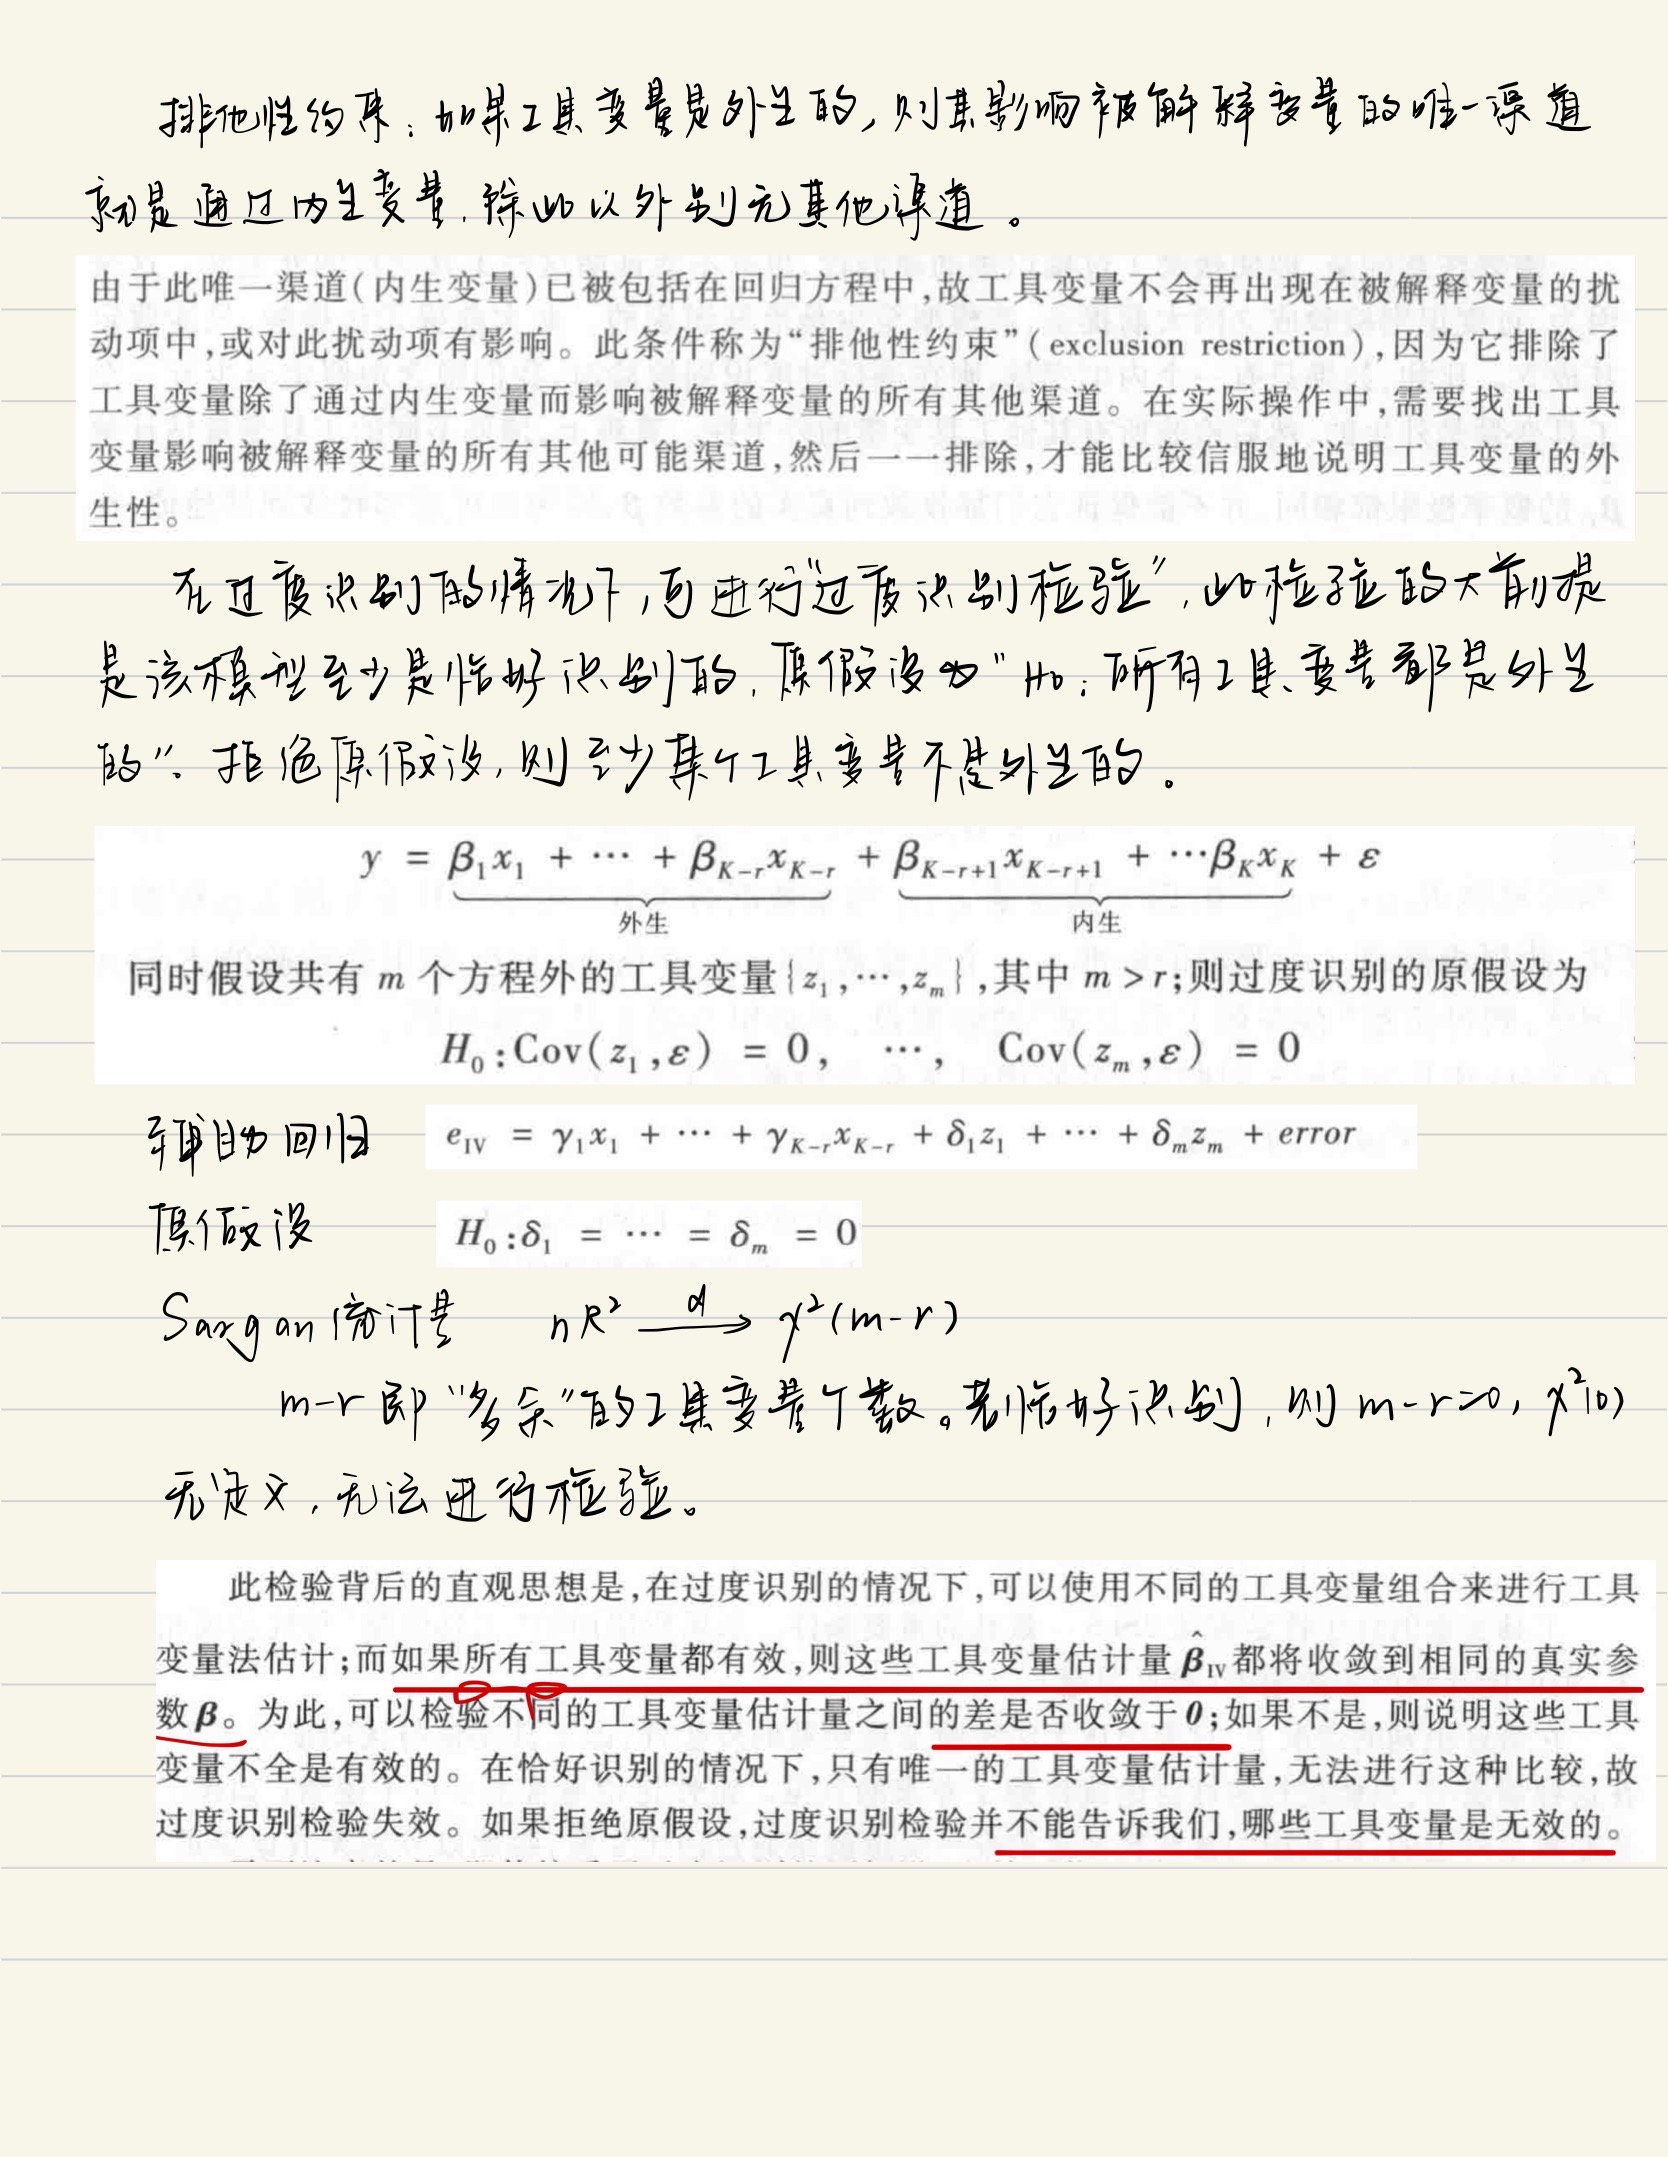 排他性约束：如果工具变量是外生的，则其影响被解释变量的唯一渠道
就是通过内生变量，除此以外别无其他渠道。
由于此唯一渠道(内生变量)已被包括在回归方程中,故工具变量不会再出现在被解释变量的扰
动项中,或对此扰动项有影响。此条件称为“排他性约束”(exclusion restriction),因为它排除了
工具变量除了通过内生变量而影响被解释变量的所有其他渠道。在实际操作中,需要找出工具
变量影响被解释变量的所有其他可能渠道,然后一一排除,才能比较信服地说明工具变量的外
生性。
在过度识别的情况下，可进行“过度识别检验”，此检验的大前提
是该模型至少是恰好识别的，原假设为“H₀：所有工具变量都是外生
的”。拒绝原假设，则至少某个工具变量不是外生的。
y = β₁x₁ + ⋯ + β_{K-r}x_{K-r} + β_{K-r+1}x_{K-r+1} + ⋯β_Kx_K + ε
外生 内生
同时假设共有 m 个方程外的工具变量{z₁,⋯,z_m},其中 m > r;则过度识别的原假设为
H₀:Cov(z₁,ε) = 0, ⋯, Cov(z_m,ε) = 0
辅助回归 e_{IV} = γ₁x₁ + ⋯ + γ_{K-r}x_{K-r} + δ₁z₁ + ⋯ + δ_mz_m + error
原假设 H₀:δ₁ = ⋯ = δ_m = 0
Sargan统计量 nR² —d→ χ²(m-r)
m-r 即“多余”的工具变量个数。若恰好识别，则 m-r=0, χ²(0)
无定义，无法进行检验。
此检验背后的直观思想是,在过度识别的情况下,可以使用不同的工具变量组合来进行工具
变量法估计;而如果所有工具变量都有效,则这些工具变量估计量 β̂_{IV}都将收敛到相同的真实参
数β。为此,可以检验不同的工具变量估计量之间的差是否收敛于0;如果不是,则说明这些工具
变量不全是有效的。在恰好识别的情况下,只有唯一的工具变量估计量,无法进行这种比较,故
过度识别检验失效。如果拒绝原假设,过度识别检验并不能告诉我们,哪些工具变量是无效的。